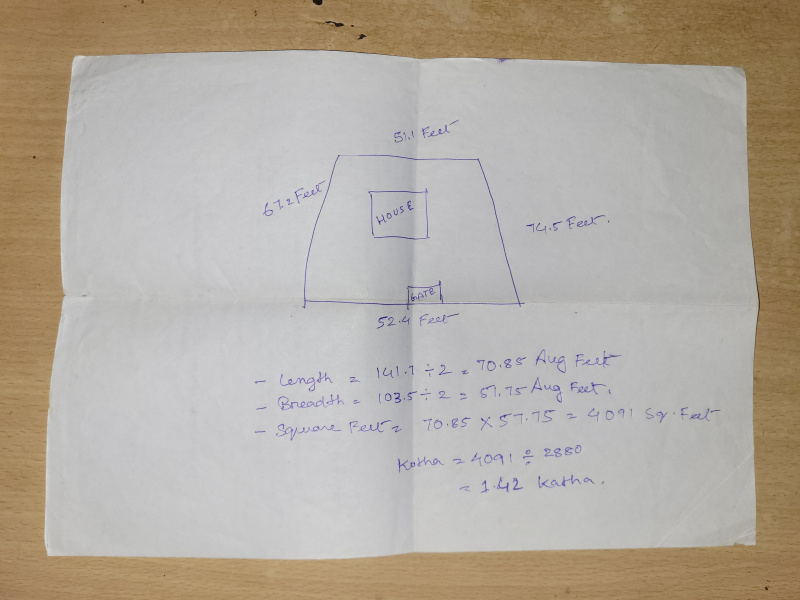 51.1 Feet
67.2 Feet
HOUSE
74.5 Feet.
GATE
52.4 Feet
- Length = 141.7 ÷ 2 = 70.85 Avg Feet
- Breadth = 103.5 ÷ 2 = 57.75 Avg Feet.
- Square Feet = 70.85 X 57.75 = 4091 Sq. Feet
Katha = 4091 ÷ 2880
= 1.42 Katha.